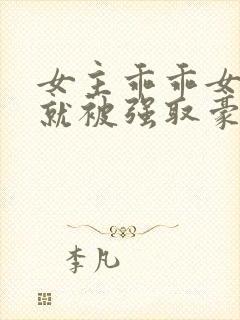 女主乖乖女
就被强取豪
李凡